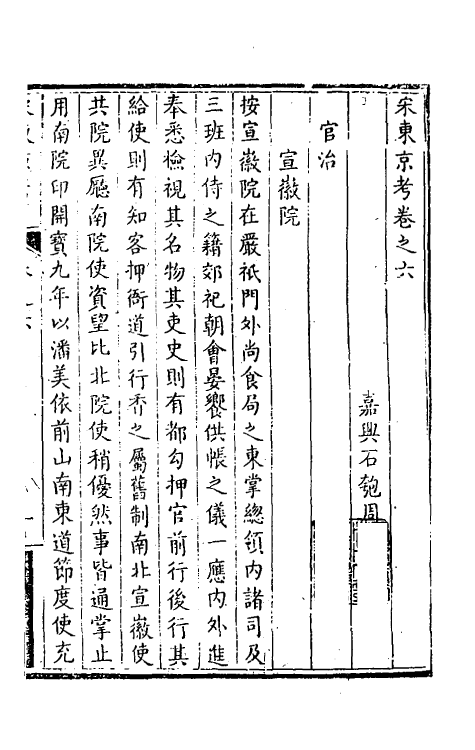 宋東京考卷之六
嘉興石匏周
官治
宣徽院
按宣徽院在嚴祇門外尚食局之東掌總領內諸司及
三班內侍之籍郊祀朝會晏饗供帳之儀一應內外進
奉悉檢視其名物其吏史則有都勾押官前行後行其
給使則有知客押衙道引行香之屬舊制南北宣徽使
共院異廳南院使資望比北院使稍優然事皆通掌止
用南院印開寶九年以潘美依前山南東道節度使充